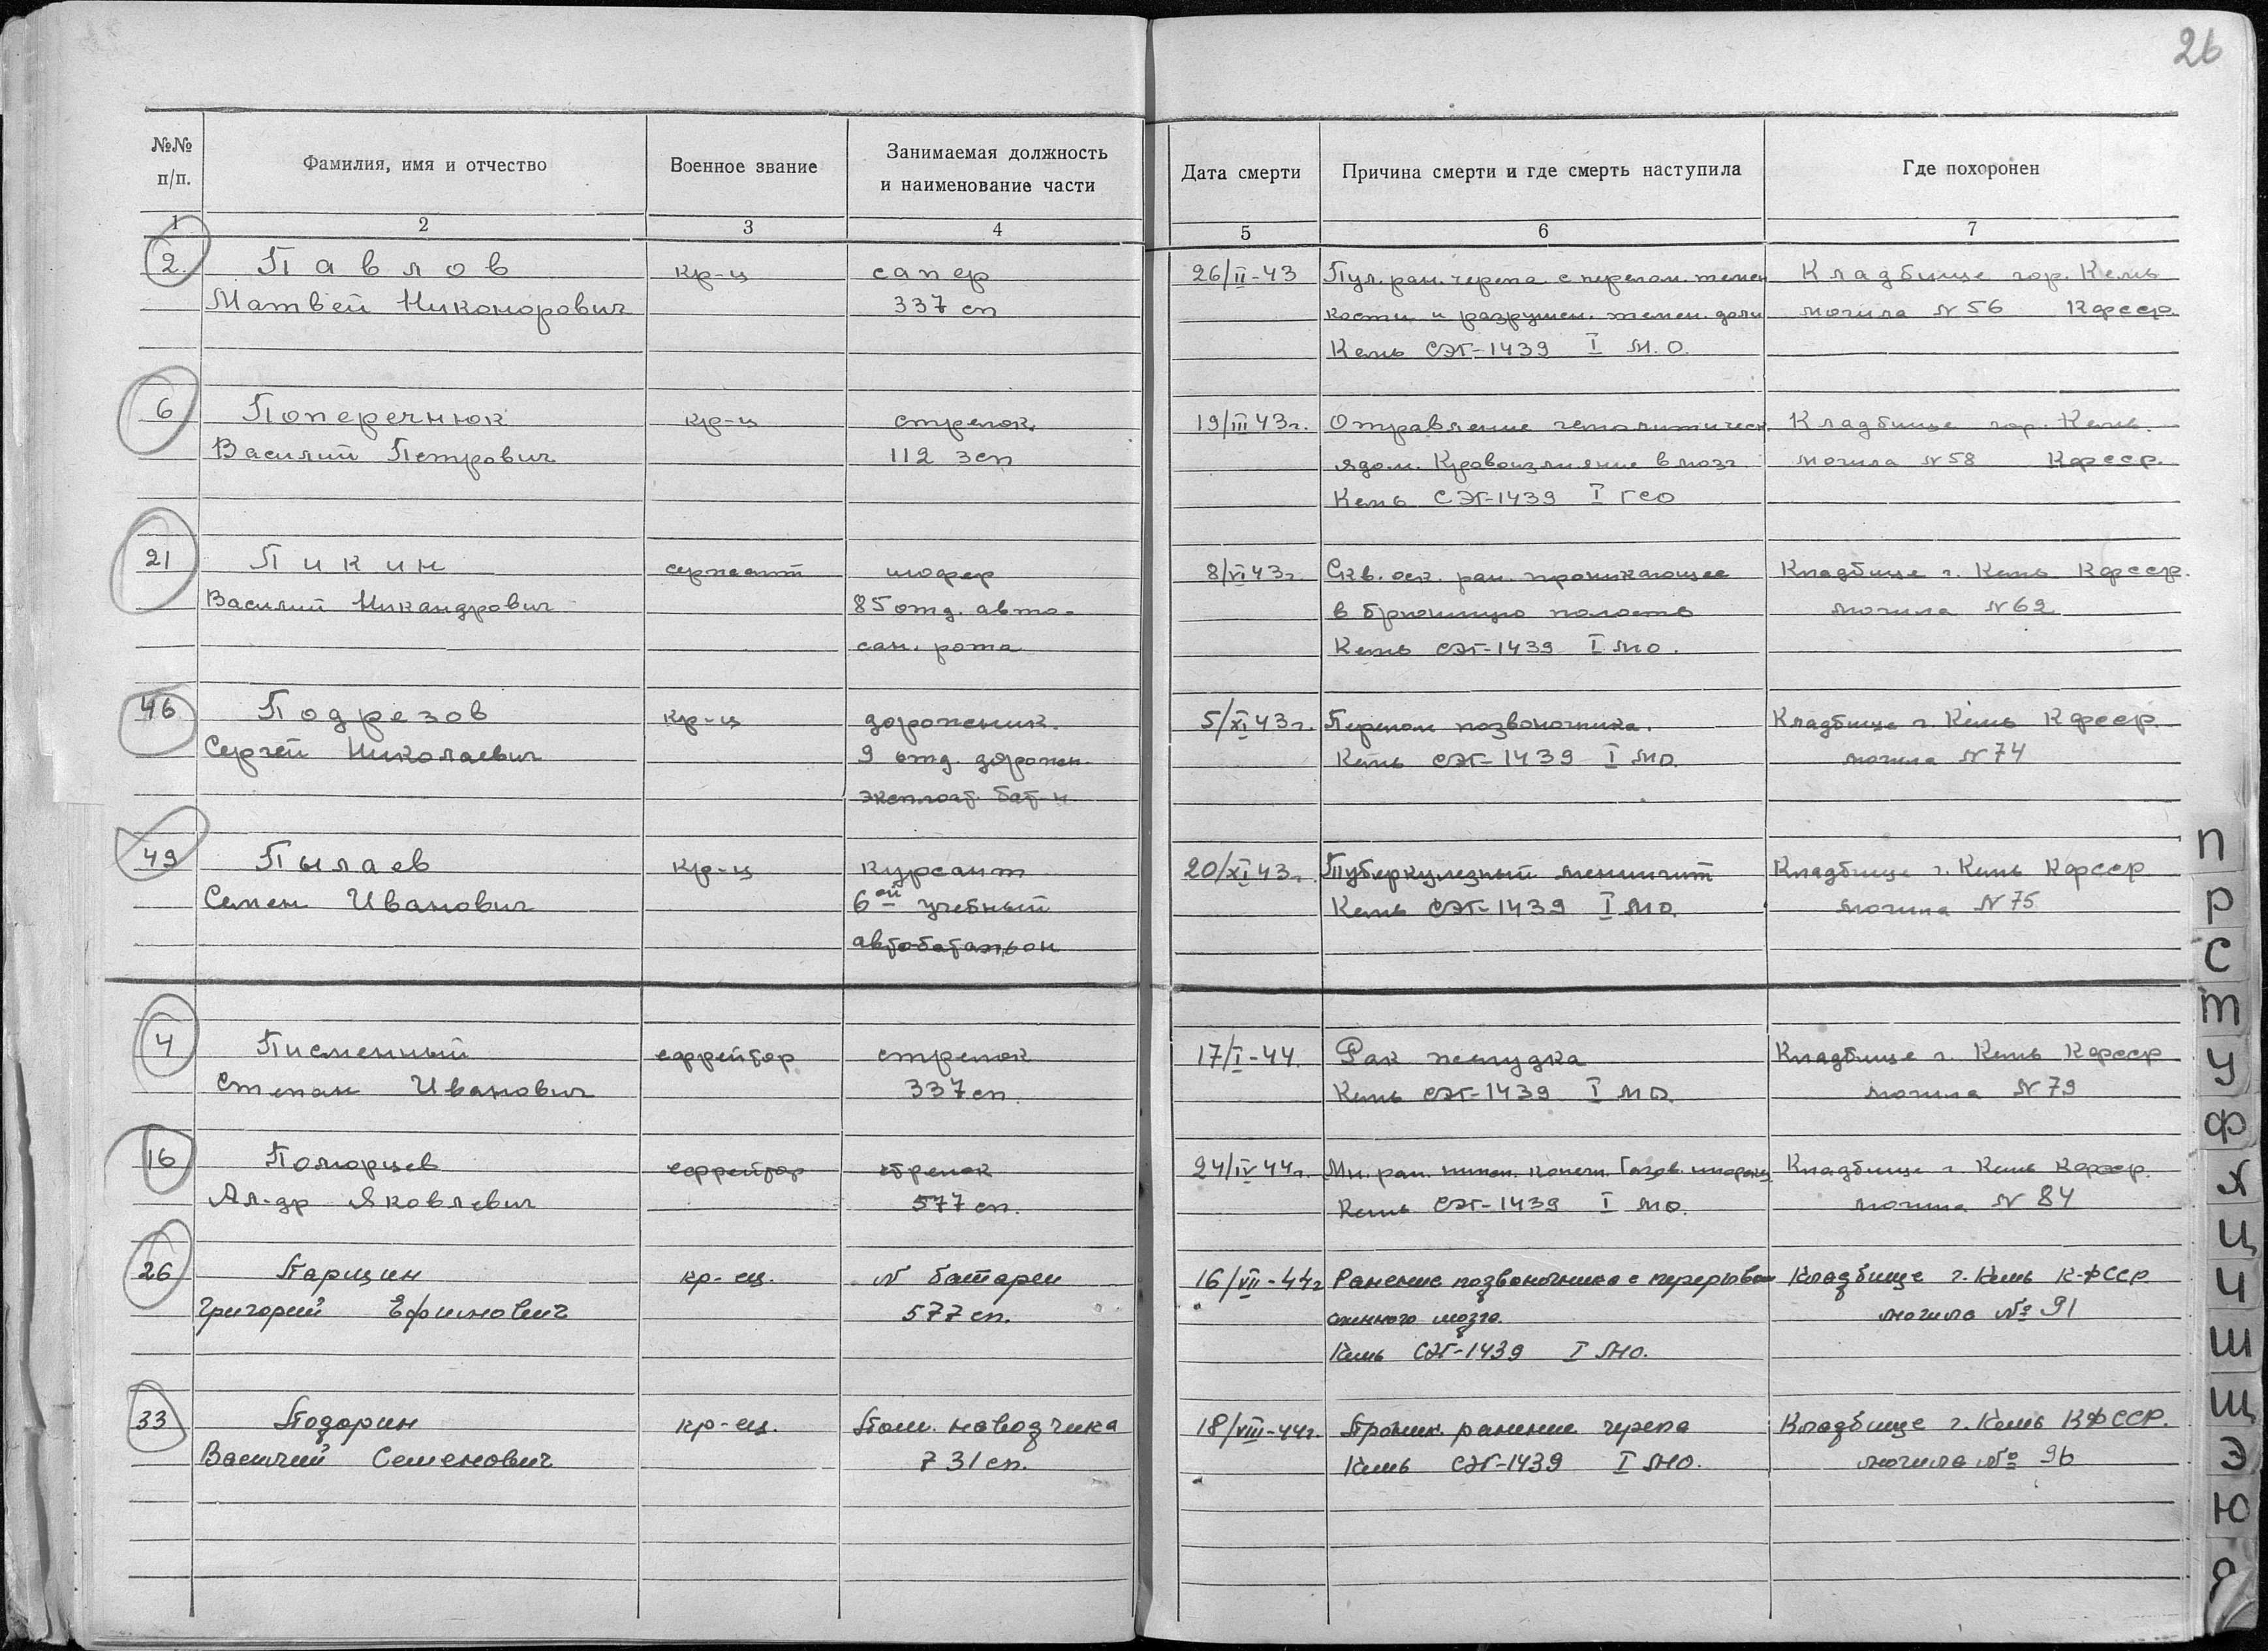 26
№№ п/п. Фамилия, имя и отчество Военное звание Занимаемая должность и наименование части Дата смерти Причина смерти и где смерть наступила Где похоронен
1 2 3 4 5 6 7
2. Павлов кр-ц сапер 26/II-43 Пул. ран. черепа с перелом. темен Кладбище гор. Кемь
Матвей Никонорович 337 сп кости и разрушен. темен. доли могила N 56 Кфсср.
Кемь СЭГ-1439 I М.О.
6 Поперечнюк кр-ц стрелок. 19/III 43г. Отравление гемолитическ. Кладбище гор. Кемь.
Василий Петрович 112 зсп ядом. Кровоизлияние в мозг. могила N 58 Кфсср.
Кемь СЭГ-1439 I ГСО
21 Пикин сержант шофер 8/VI 43г. Скв. оск. ран. проникающее Кладбище г. Кемь Кфсср.
Василий Никандрович 85 отд. авто- в брюшную полость могила N 62
сан. рота Кемь СЭГ-1439 I МО.
46 Подрезов кр-ц дорожник. 5/XI 43г. Перелом позвоночника. Кладбище г. Кемь Кфсср.
Сергей Николаевич 9 отд. дорожн. Кемь СЭГ-1439 I МО. могила N 74
эксплоат. бат-н
49 Пылаев кр-ц курсант 20/XI 43г. Туберкулезный менингит Кладбище г. Кемь Кфсср
Семен Иванович 6ой учебный Кемь СЭГ-1439 I МО. могила N 75
автобатальон
4 Писменный ефрейтор стрелок 17/I-44. Рак желудка Кладбище г. Кемь Кфсср
Степан Иванович 337 сп. Кемь СЭГ-1439 I МО. могила N 79
16 Поморцев ефрейтор стрелок 24/IV 44г. Мн. ран. нижн. конечн. Газов. Кладбище г. Кемь Кфсср.
Ал-др Яковлевич 577 сп. Кемь СЭГ-1439 I МО. могила N 84
26 Паршин кр-ец. батареи 16/VII-44г Ранение позвоночника с перерывом Кладбище г. Кемь К-ФССР
Григорий Ефимович 577 сп. спинного мозга. могила № 91
Кемь СЭГ-1439 I МО.
33 Подорин кр-ец. Пом. наводчика 18/VIII-44г. Проник. ранение черепа Кладбище г. Кемь КФССР.
Василий Семенович 731 сп. Кемь СЭГ-1439 I МО. могила № 96
П
Р
С
Т
У
Ф
Х
Ц
Ч
Ш
Щ
Э
Ю
Я